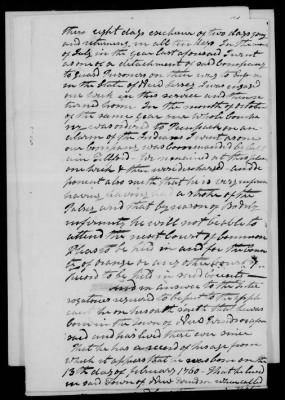 there eight days exclusive of two days going
and returning in all ten days In the month
of July in the year last aforesaid I went
as one of a detachment of said company
to guard Prisoners on their way to
in the State of New Jersey I was engaged
one week in this service and then re-
turned home In the month of
of the same year our whole company
was ordered to Peenpack on an
alarm of the Indians I went as one
our Company was commanded by Capt
We remained at this place
one week & then were discharged and de-
ponent also saith that he is very infirm
having had a stroke of the
Palsey and that by reason of Bodily
infirmity he will not be able to
attend the next Court of Common
Pleas to be held in and for the Coun-
ty of Orange or any other Court ap-
pointed to be held in said County
And in answer to the Inter-
rogatories required to be put to the appli-
cant he on his oath saith that he was
born in the town of New Windsor afore-
said and has lived there ever since
That he has a record of his age from
which it appears that he was born on the
13th day of february 1760 That he lived
in said Town of New Windsor when called